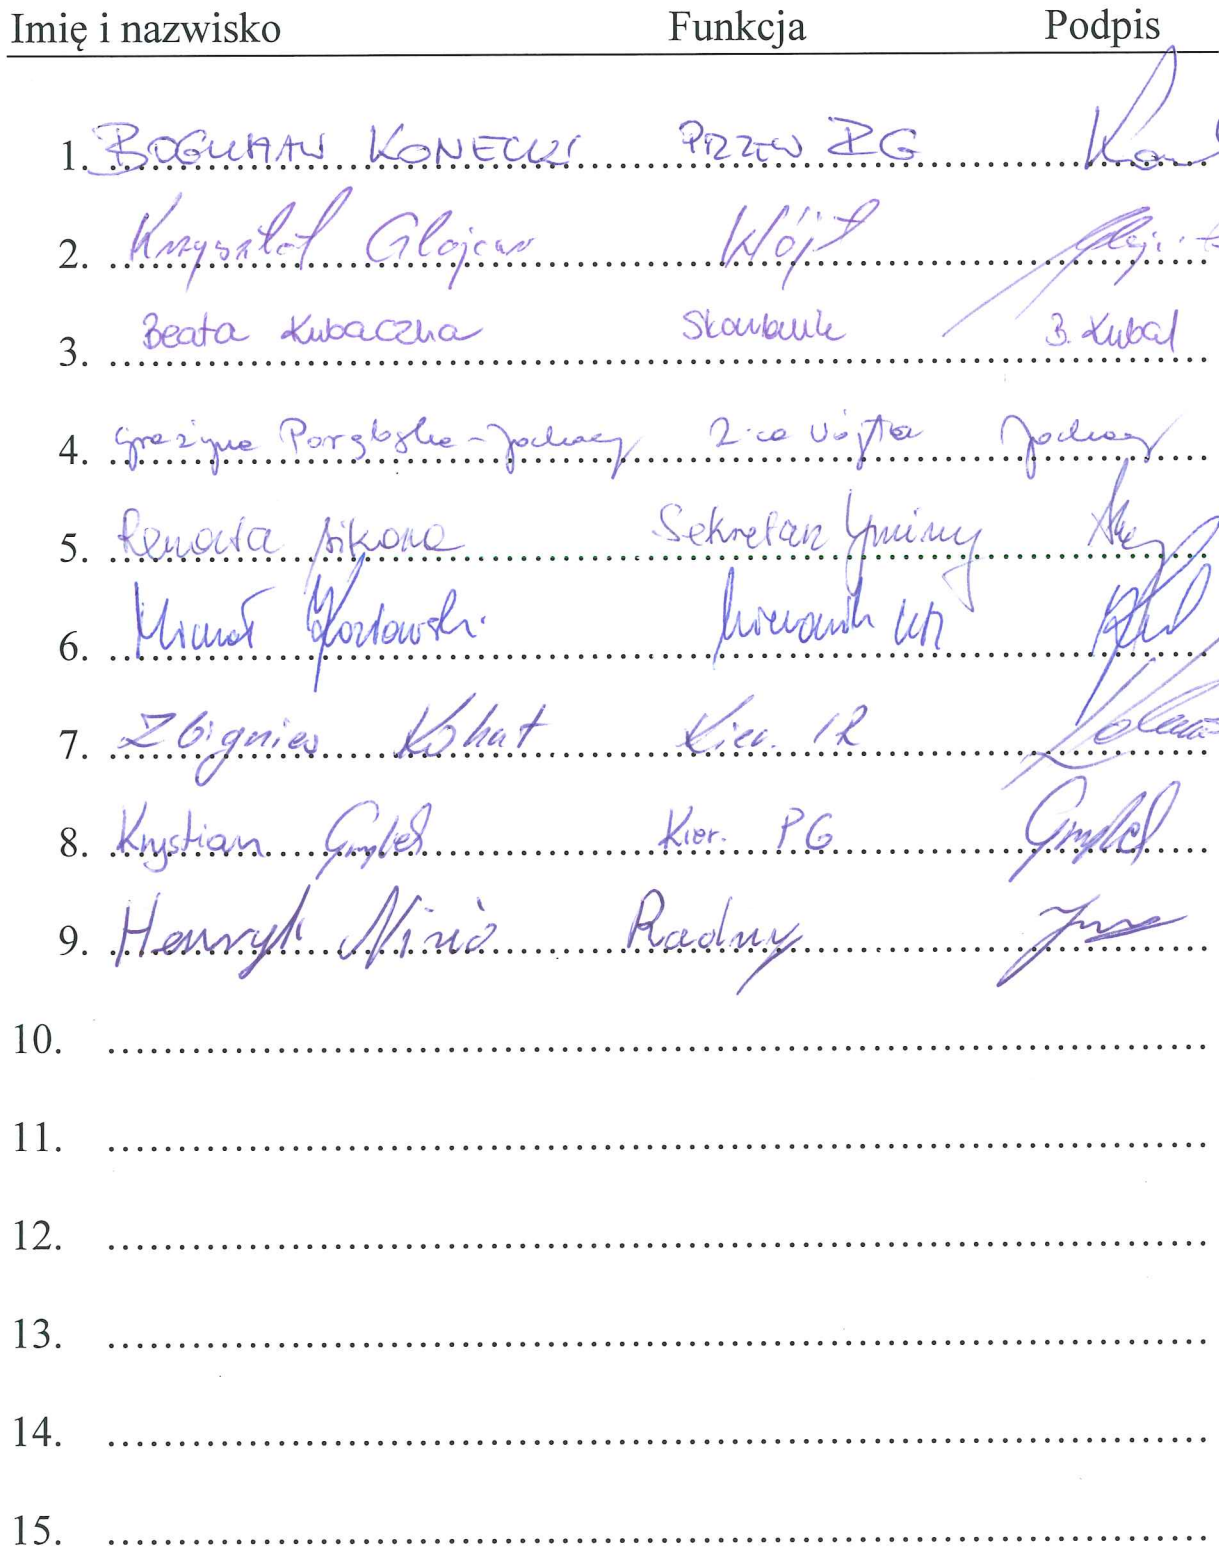 Imię i nazwisko Funkcja Podpis
1. BOGUSŁAW KONECKI PRZEW RG
2. Krzysztof Glajcar Wójt
3. Beata Kubaczka Skarbnik B. Kubal
4. Grażyna Porębska-Jochacy Z-ca Wójta Jochacy
5. Renata Sikora Sekretarz Gminy
6. Michał Kozłowski Kierownik
7. Zbigniew Kohut Kier. IR
8. Krystian Grzybek Kier. PG Grzybek
9. Henryk Nizio Radny
10.
11.
12.
13.
14.
15.